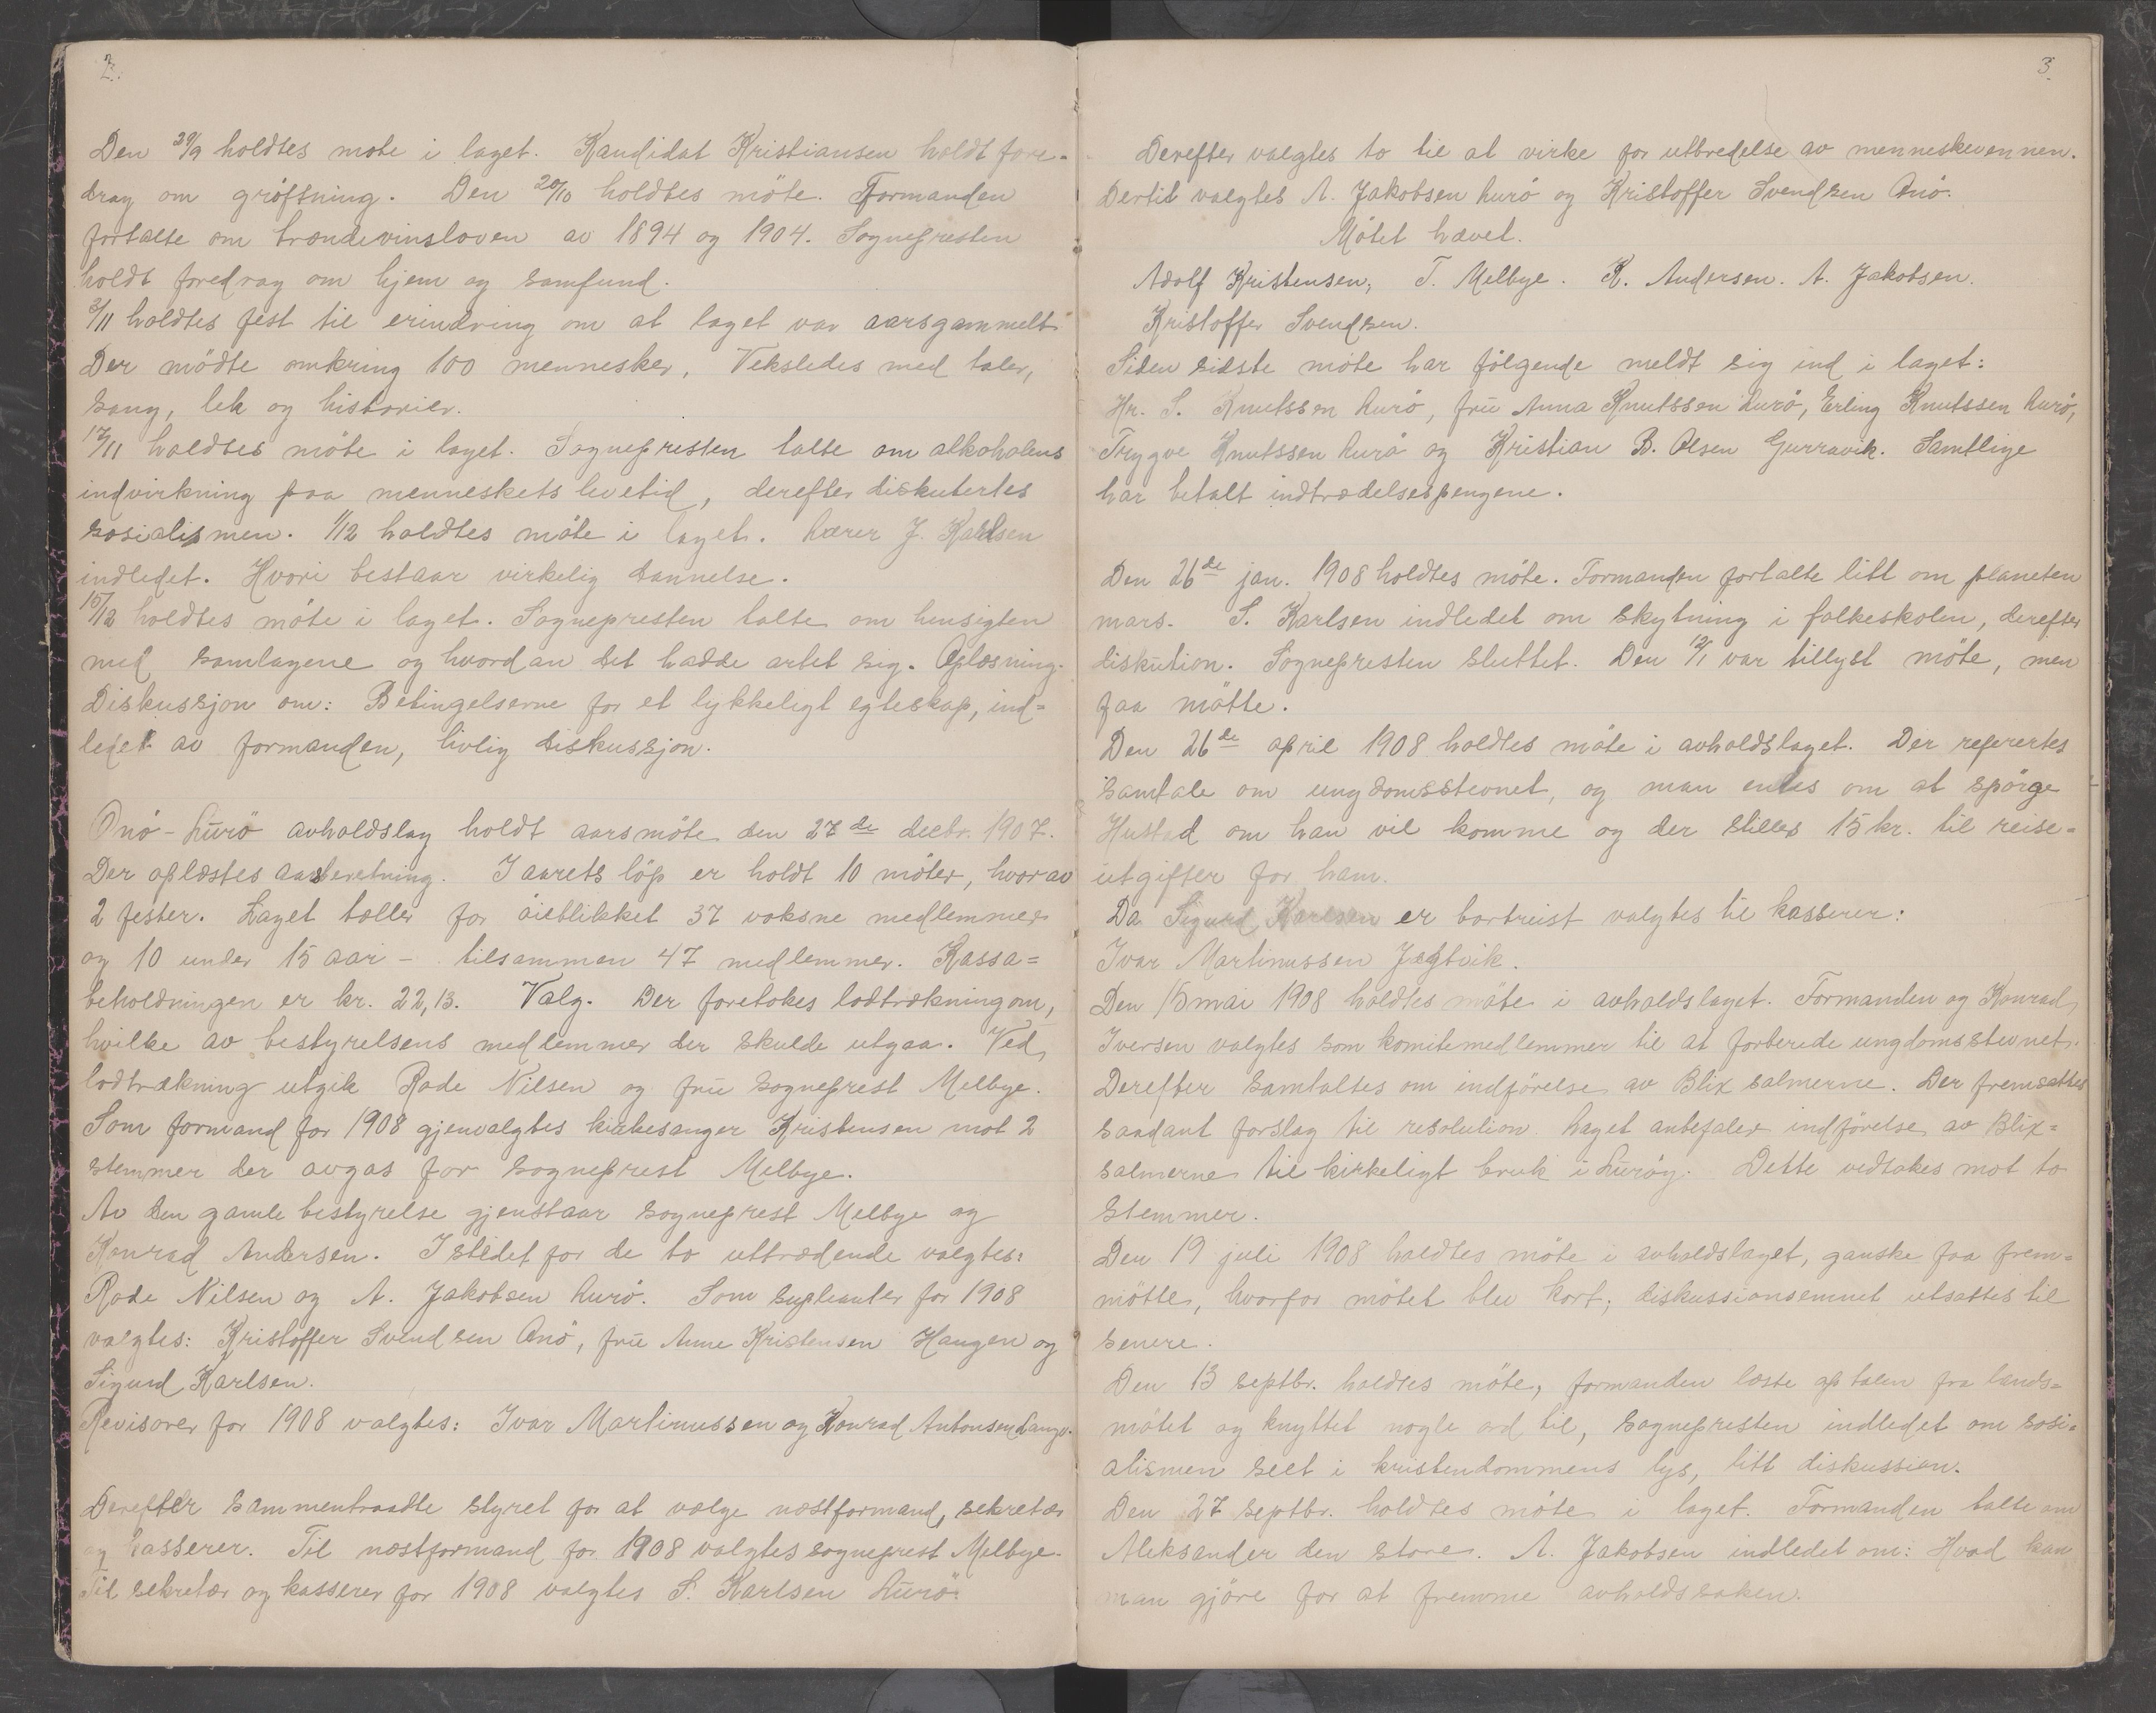 2.
Den 29/9 holdtes møte i laget. Kandidat Kristiansen holdt fore-
drag om grøftning. Den 20/10 holdtes möte. Formanden
fortalte om brændevinsloven av 1894 og 1904. Sognepresten
holdt foredrag om hjem og samfund.
3/11 holdtes fest til erindring om at laget var aarsgammelt.
Der mödte omkring 100 mennesker. Veksledes med taler,
sang, lek og historier.
17/11 holdtes möte i laget. Sognepresten talte om alkoholens
indvirkning paa menneskets levetid, derefter diskutertes
sosialismen. 1/12 holdtes möte i laget. Lærer J. Karlsen
indledet. Hvori bestaar virkelig dannelse.
15/12 holdtes möte i laget. Sognepresten talte om hensigten
med samlagene og hvordan det hadde artet sig. Oplæsning.
Diskussjon om: Betingelserne for et lykkeligt egteskap, ind=
ledet av formanden, livlig diskussjon.
Onö-Lurö avholdslag holdt aarsmöte den 27de decbr. 1907.
Der oplæstes aarsberetning. I aarets löp er holdt 10 möter, hvorav
2 fester. Laget tæller for öieblikket 37 voksne medlemmer
og 10 under 15 aar - tilsammen 47 medlemmer. Kassa=
beholdningen er kr. 22,13. Valg. Der foretokes lodtrækning om,
hvilke av bestyrelsens medlemmer der skulde utgaa. Ved
lodtrækning utgik Rode Nilsen og frü sogneprest Melbye.
Som formand for 1908 gjenvalgtes kirkesanger Kristensen mot 2
stemmer der avgas for sogneprest Melbye.
Av den gamle bestyrelse gjenstaar sogneprest Melbye og
Konrad Andersen. Istedet for de to uttrædende valgtes:
Rode Nilsen og A. Jakobsen Lurö. Som supleanter for 1908
valgtes: Kristoffer Svendsen Onö, frü Anne Kristensen Haugen og
Sigurd Karlsen.
Revisorer for 1908 valgtes: Ivar Martinussen og Konrad Antonsen
Derefter sammentraadte styret for at vælge næstformand, sekretær
og kasserer. Til næstformand for 1908 valgtes sogneprest Melbye.
Til sekretær og kasserer for 1908 valgtes S. Karlsen Lurö.
3.
Derefter valgtes to til at virke for utbredelse av menneskevennen.
Dertil valgtes A. Jakobsen Lurö og Kristoffer Svendsen Onö.
Mötet hævet.
Adolf Kristensen, T. Melbye. K. Andersen. A. Jakobsen.
Kristoffer Svendsen.
Siden sidste möte har fölgende meldt sig ind i laget:
Hr. S. Knutssen Lurö, frü Anna Knutssen Lurö, Erling Knutssen Lurö,
Trygve Knutssen Lurö og Kristian B. Olsen Gurravik. Samtlige
har betalt indtrædelsespengene.
Den 26de jan. 1908 holdtes möte. Formanden fortalte litt om planeten
mars. S. Karlsen indledet om skytning i folkeskolen, derefter
diskution. Sognepresten sluttet. Den 12/1 var tillyst möte, men
faa mötte.
Den 26de april 1908 holdtes möte i avholdslaget. Der referertes
samtale om ungdomsstevnet, og man enedes om at spörge
Hustad om han vil komme og der stilles 15 kr. til reise=
utgifter for ham.
Da Sigurd Karlsen er bortreist valgtes til kasserer:
Ivar Martinussen Jegtvik.
Den 15 mai 1908 holdtes möte i avholdslaget. Formanden og Konrad
Iversen valgtes som komitemedlemmer til at forberede ungdomsstevnet.
Derefter samtaltes om indförelse av Blix salmerne. Der fremsattes
saadant forslag til resolution. Laget anbefaler indförelse av Blix=
salmerne til kirkeligt bruk i Luröy. Dette vedtokes mot to
stemmer.
Den 19 juli 1908 holdtes möte i avholdslaget, ganske faa frem=
mötte, hvorfor mötet blev kort; diskussionsemnet utsattes til
senere.
Den 13 septbr. holdtes möte, formanden læste op talen fra lands=
mötet og knyttet nogle ord til, sognepresten indledet om sosi=
alismen seet i kristendommens lys, litt diskussion.
Den 27 septbr. holdtes möte i laget. Formanden talte om
Aleksander den store. A. Jakobsen indledet om: Hvad kan
man gjöre for at fremme avholdssaken.